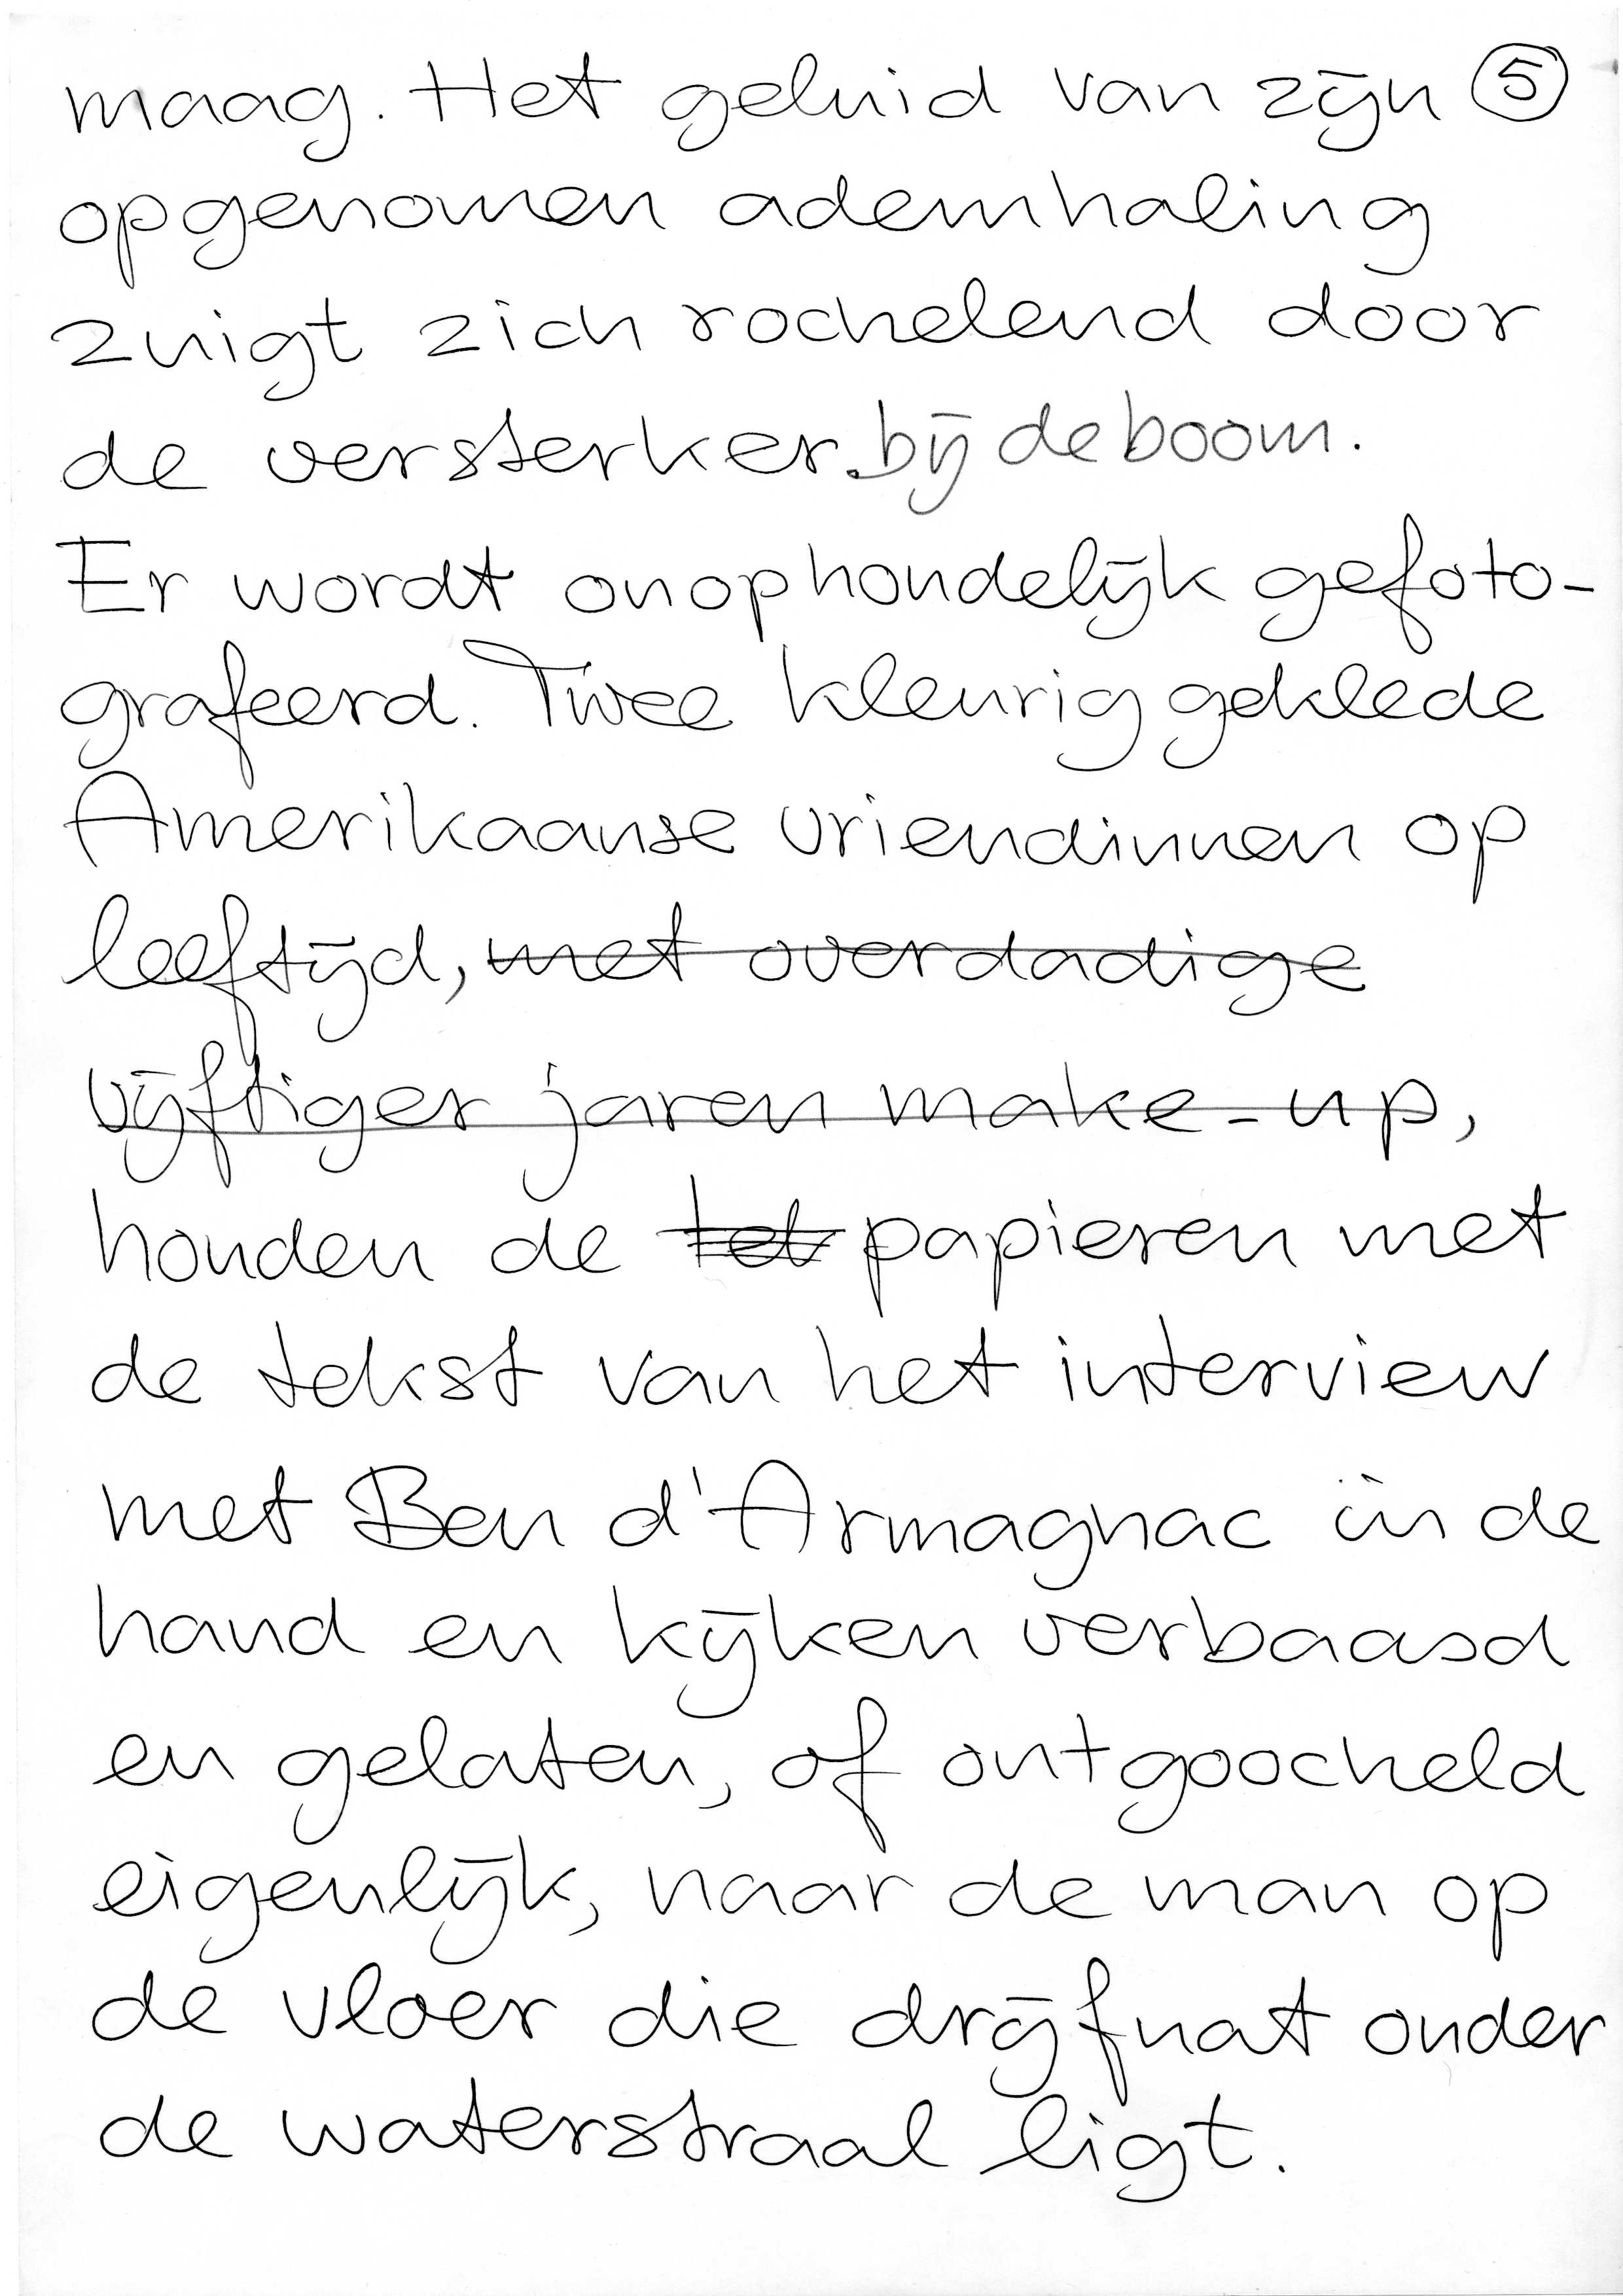 maag. Het geluid van zijn ⑤
opgenomen ademhaling
zuigt zich rochelend door
de versterker. bij de boom.
Er wordt onophoudelijk gefoto-
grafeerd. Twee kleurig geklede
Amerikaanse vriendinnen op
leeftijd, met overdadige
vijftiger jaren make-up,
houden de papieren met
de tekst van het interview
met Ben d'Armagnac in de
hand en kijken verbaasd
en gelaten, of ontgoocheld
eigenlijk, naar de man op
de vloer die drijfnat onder
de waterstraal ligt.